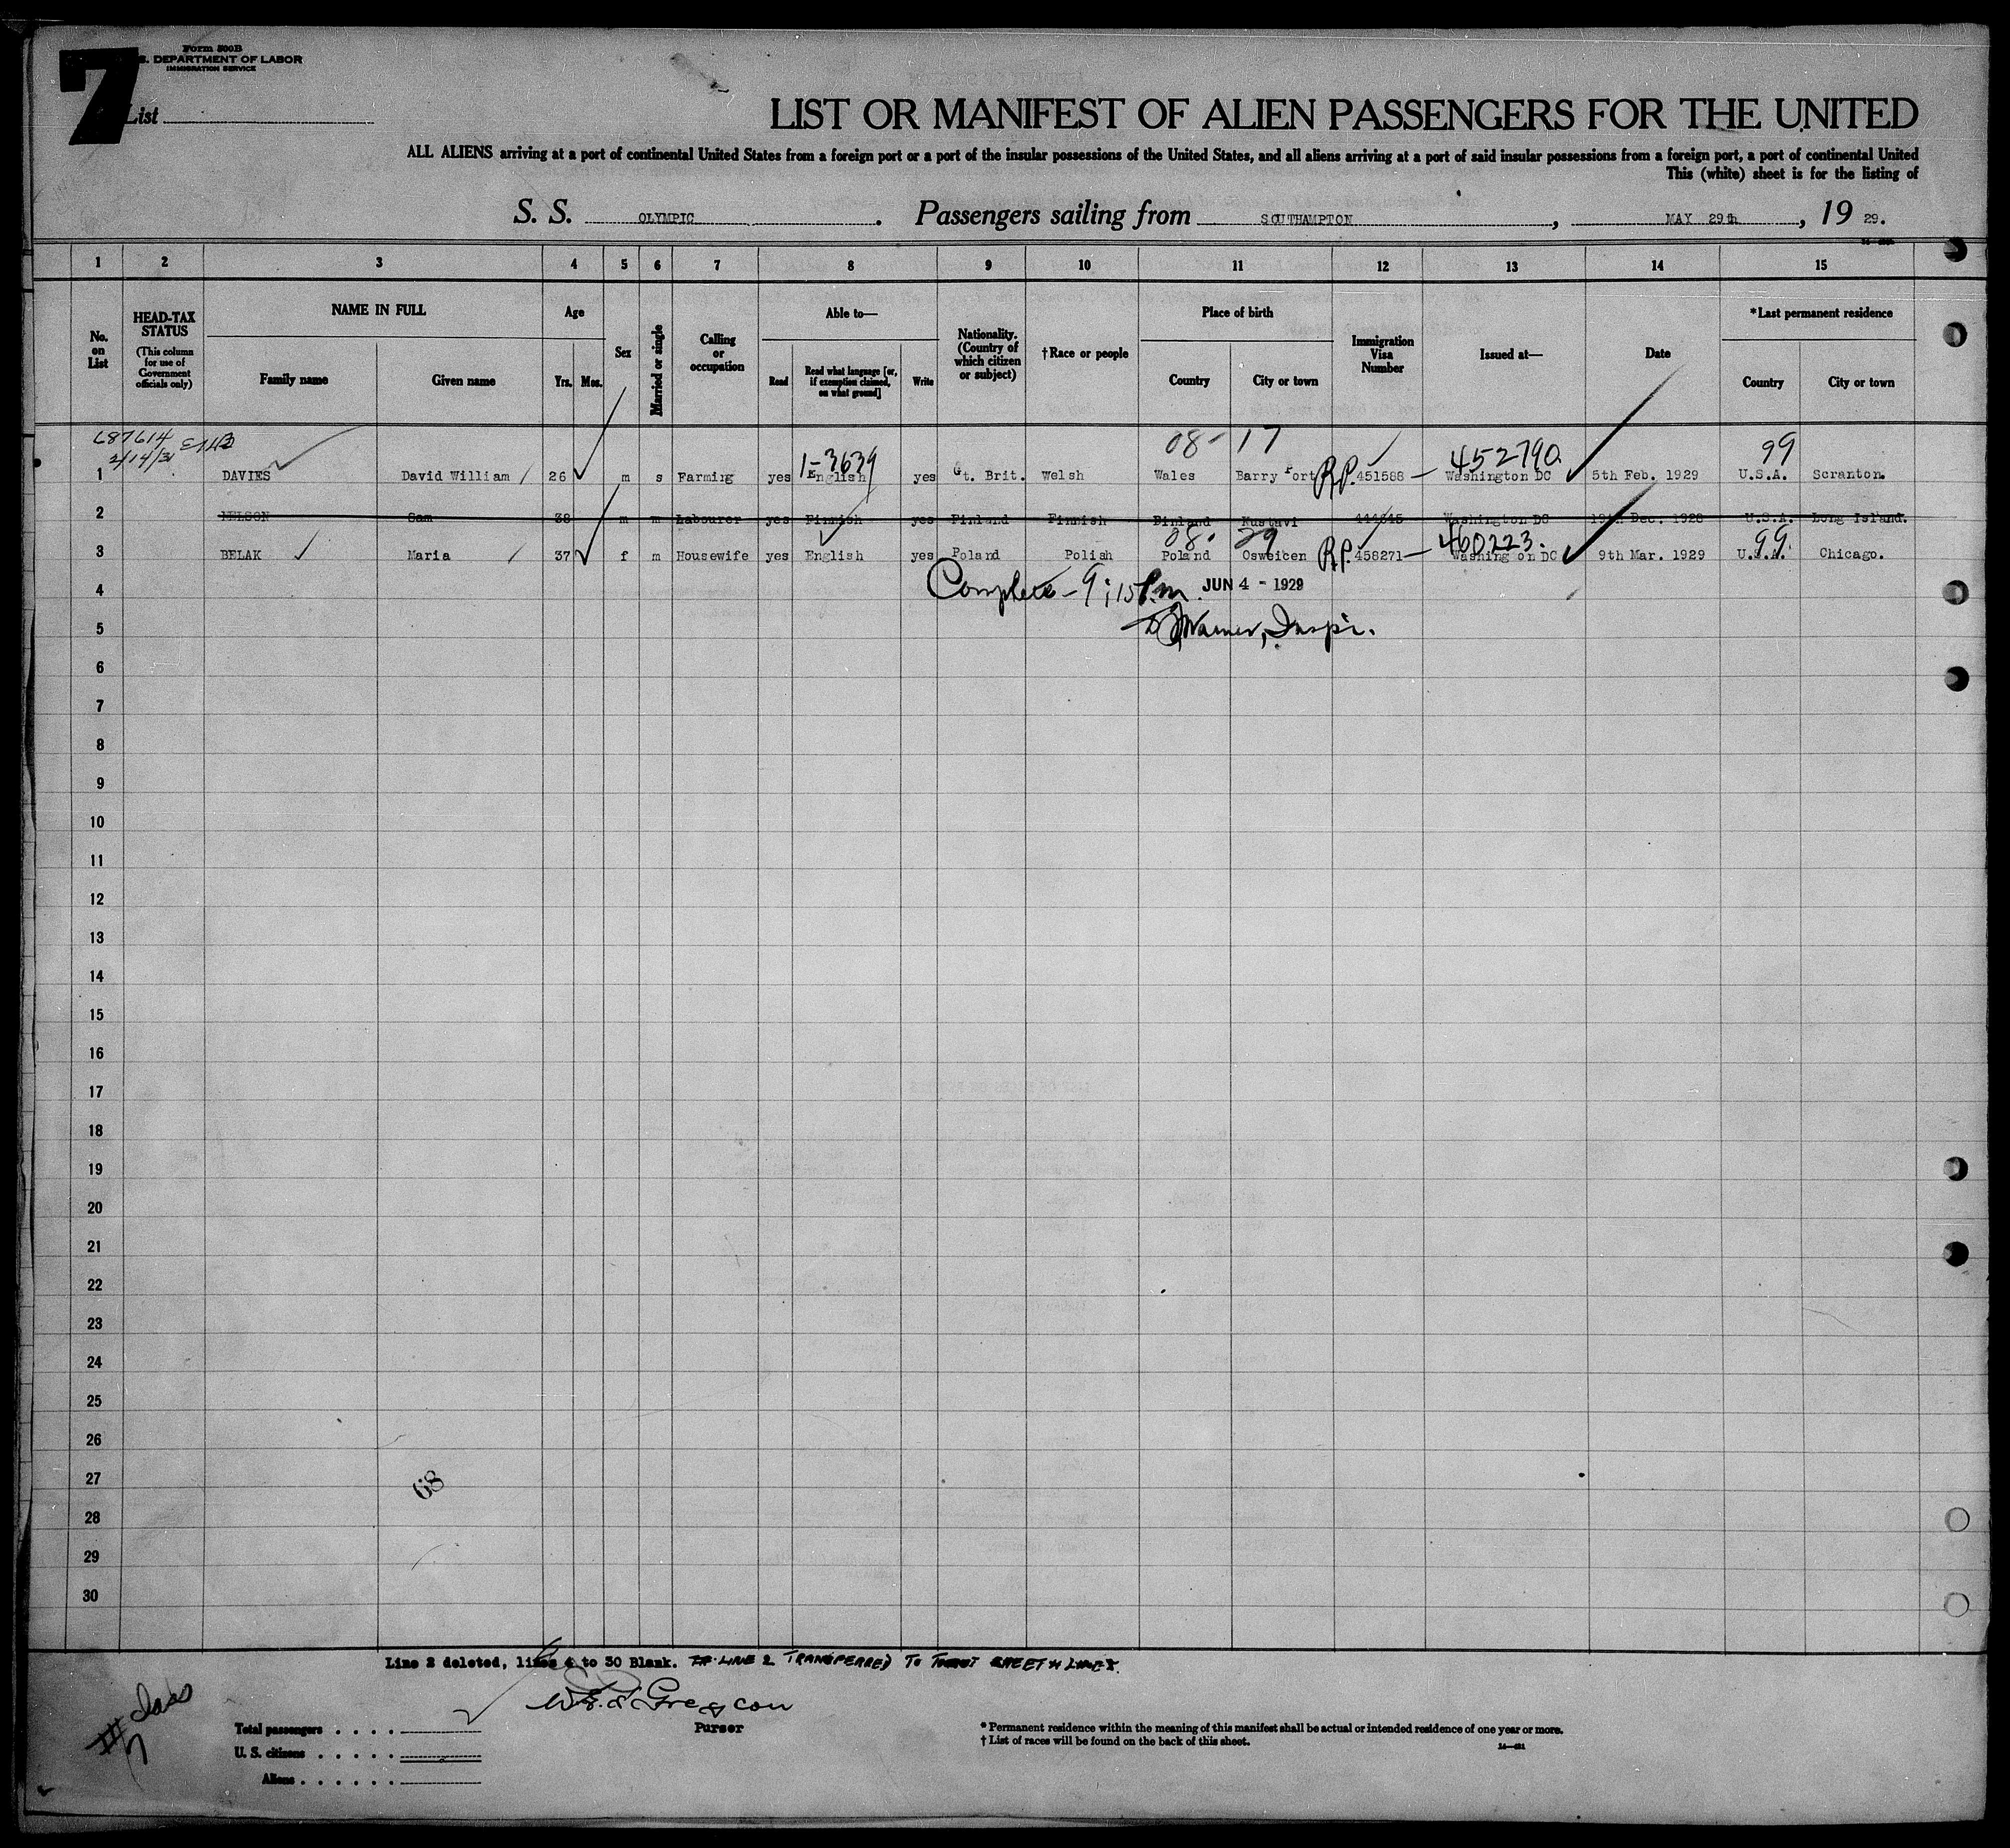 7
Form 500B
S. DEPARTMENT OF LABOR
IMMIGRATION SERVICE
List
LIST OR MANIFEST OF ALIEN PASSENGERS FOR THE UNITED
ALL ALIENS arriving at a port of continental United States from a foreign port or a port of the insular possessions of the United States, and all aliens arriving at a port of said insular possessions from a foreign port, a port of continental United
This (white) sheet is for the listing of
S. S. OLYMPIC. Passengers sailing from SOUTHAMPTON, MAY 29th, 19 29.
1 2 3 4 5 6 7 8 9 10 11 12 13 14 15
No. on List
HEAD-TAX STATUS
(This column for use of Government officials only)
NAME IN FULL
Family name
Given name
Age
Yrs. Mos.
Sex
Married or single
Calling or occupation
Able to—
Read
Read what language [or, if exemption claimed, on what ground]
Write
Nationality. (Country of which citizen or subject)
†Race or people
Place of birth
Country
City or town
Immigration Visa Number
Issued at—
Date
*Last permanent residence
Country
City or town
687614
2/14/31
1-3639 08- 17 452790 99
1 DAVIES David William 26 m s Farming yes English yes Gt. Brit. Welsh Wales Barry Port R.P. 451588 Washington DC 5th Feb. 1929 U.S.A. Scranton.
2 NELSON Sam 38 m m Labourer yes Finnish yes Finland Finnish Finland Kustavi Washington DC 19th Dec. 1928 U.S.A. Long Island.
08- 29 460223. 99
3 BELAK Maria 37 f m Housewife yes English yes Poland Polish Poland Osweicen R.P. 458271 Washing on DC 9th Mar. 1929 U.S.A. Chicago.
4 Complete - 9:15 P.m. JUN 4 - 1929
5 Warner, Inspr.
6
7
8
9
10
11
12
13
14
15
16
17
18
19
20
21
22
23
24
25
26
27
28
29
30
68
Line 2 deleted, lines 4 to 30 Blank. LINE 2 TRANSFERRED TO SHEET
Purser
Total passengers
U. S. citizens
Aliens
* Permanent residence within the meaning of this manifest shall be actual or intended residence of one year or more.
† List of races will be found on the back of this sheet.